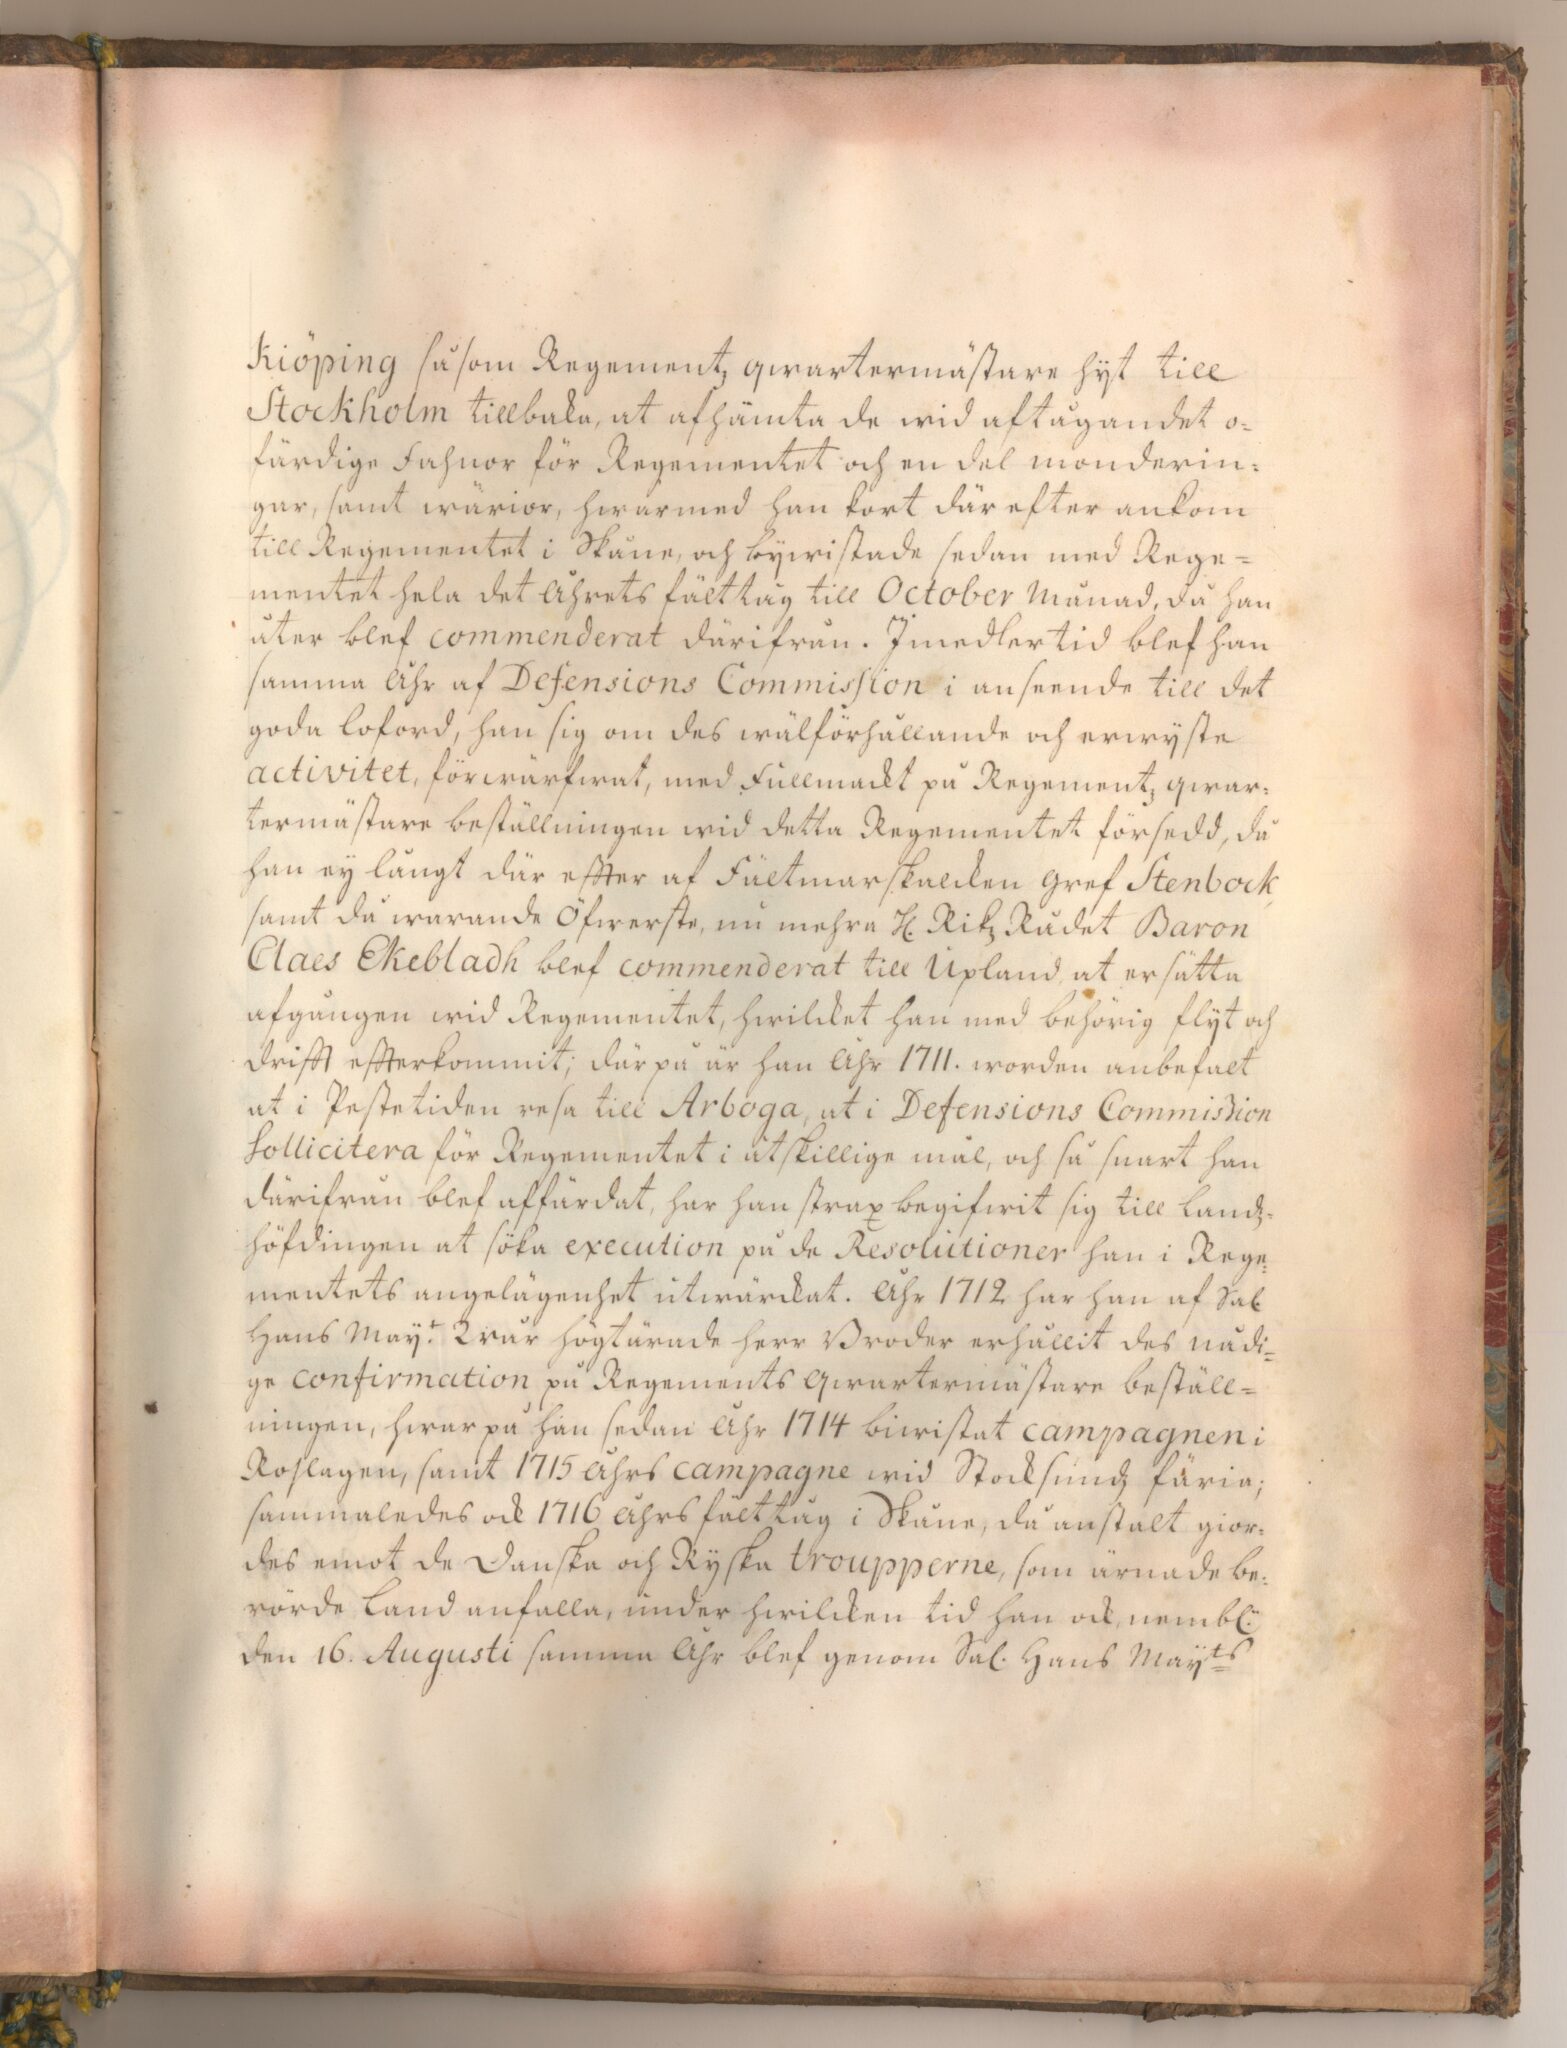 Kiöping såsom Regementz qwartermästare hijt till
Stockholm tillbaka, at afhämta de wid aftågandet o=
färdige Fahnor för Regementet och en del monderin=
gar, samt wärior, hwarmed han kort därefter ankom
till Regementet i Skåne, och bywistade sedan med Rege=
mentet hela det Åhrets fälttåg till October Månad, då han
åter blef commenderat därifrån. Imedlertid blef han
samma Åhr af Defensions Commission i anseende till det
goda loford, han sig om des wälförhållande och erwyste
activitet, förwärfwat, med Fullmackt på Regementz qwar=
termästare beställningen wid detta Regementet försedd, då
han ey långt där effter af Fältmarskalcken Gref Stenbock,
samt då warande Öfwerste, nu mehra H. Rikz Rådet Baron
Claes Ekebladh blef commenderat till Upland, at ersätta
afgången wid Regementet, hwilcket han med behörig flijt och
drifft effterkommit; därpå är han Åhr 1711. worden anbefalt
at i Pestetiden resa till Arboga, at i Defensions Commission
Sollicitera för Regementet i åtskillige mål, och så snart han
därifrån blef affärdat, har han strax begifwit sig till Landz=
höfdingen at söka execution på de Resolutioner han i Rege=
mentets angelägenhet utwärckat. Åhr 1712 har han af Sal.
Hans Mayt. Wår högtärade herr Broder erhållit des nådi=
ge confirmation på Regements Qwartermästare beställ=
ningen, hwarpå han sedan Åhr 1714 biwistat campagnen i
Roslagen, samt 1715 Åhrs campagne wid Stocksundz färia;
sammaledes ock 1716 Åhrs fälttåg i Skåne, då anstalt gior=
des emot de Danska och Ryska troupperne, som ärnade be=
rörde Land anfalla, under hwilcken tid han ock, nembl.
den 16. Augusti samma Åhr blef genom Sal. Hans Mayts